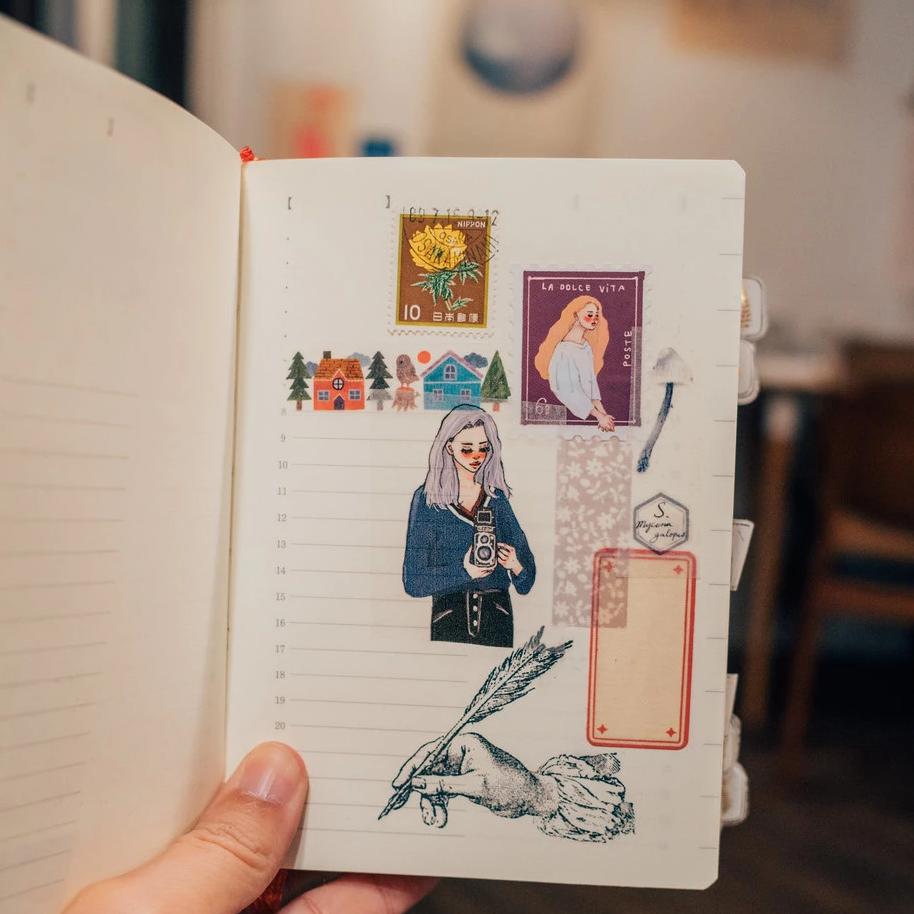 【 】
NIPPON
OSAKA
10 日本郵便
LA DOLCE VITA
POSTE
8
9
10
11
12
13
14
15
16
17
18
19
20
S.
Mycena
galopus